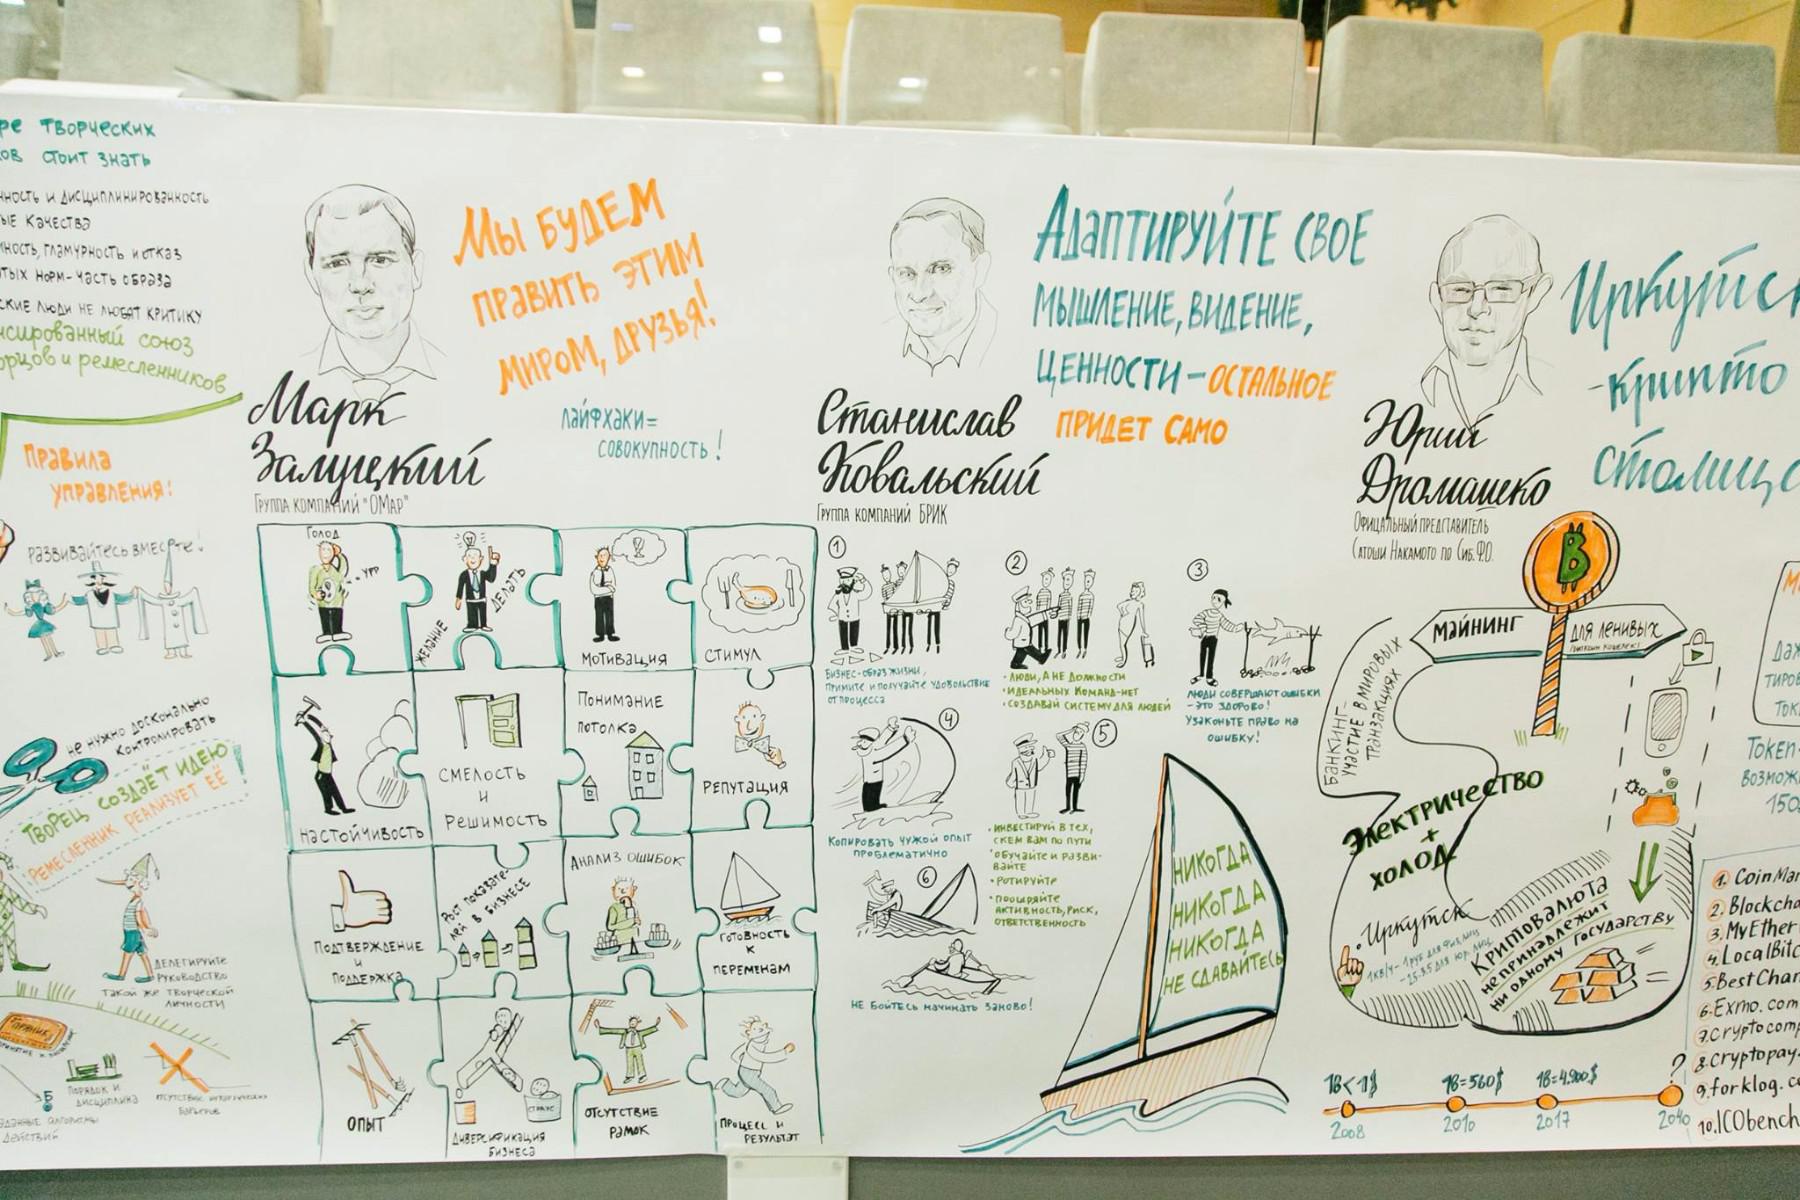 ре творческих
ов стоит знать
ность и дисциплинированность
ые качества
ность, гламурность и отказ
тых норм - часть образа
ские люди не любят критику
нсированный союз
орцов и ремесленников
Правила
управления:
развивайтесь вместе!
не нужно досконально
контролировать
творец создаёт идею
ремесленник реализует её!
делегируйте
руководство
такой же творческой
личности
порядок и
дисциплина
отсутствие
барьеров
алгоритмы
действий
Марк
Залуцкий
Группа компаний "ОМар"
Мы будем
править этим
миром, друзья!
лайфхаки =
совокупность!
Голод
урр
желание
делать
мотивация
стимул
настойчивость
смелость
и
решимость
Понимание
потолка
репутация
Подтверждение
и
Поддержка
Рост показате-
лей в бизнесе
Анализ ошибок
готовность
к
переменам
опыт
диверсификация
бизнеса
отсутствие
рамок
процесс и
результат
Станислав
Ковальский
Группа компаний БРИК
Адаптируйте свое
мышление, видение,
ценности - остальное
придет само
1
бизнес - образ жизни,
примите и получайте удовольствие
от процесса
2
• люди, а не должности
• идеальных команд - нет
• создавай систему для людей
3
люди совершают ошибки
- это здорово!
узаконьте право на
ошибку!
4
Копировать чужой опыт
проблематично
5
• инвестируй в тех,
с кем вам по пути
• обучайте и разви-
вайте
• ротируйте
• поощряйте
активность, риск,
ответственность
6
не бойтесь начинать заново!
никогда
никогда
никогда
не сдавайтесь
Юрий
Дромашко
Офицальный представитель
Сатоши Накамото по Сиб.Ф.О.
Иркутск
- крипто
столица
B
майнинг
для ленивых
биткоин кошелек
Банкинг -
участие в мировых
транзакциях
Электричество
+
холод
Иркутск
1кВ/ч - 1руб для физ.лиц
Криптовалюта
не принадлежит
ни одному государству
1B<1$
1B=560$
1B=4.900$
?
2008
2010
2017
2040
Token-
возмож
150
1. CoinMar
2. Blockcha
3. MyEther
4. LocalBitc
5. BestChan
6. Exmo.com
7. Cryptocomp
8. cryptopay.
9. forklog.co
10. ICObench